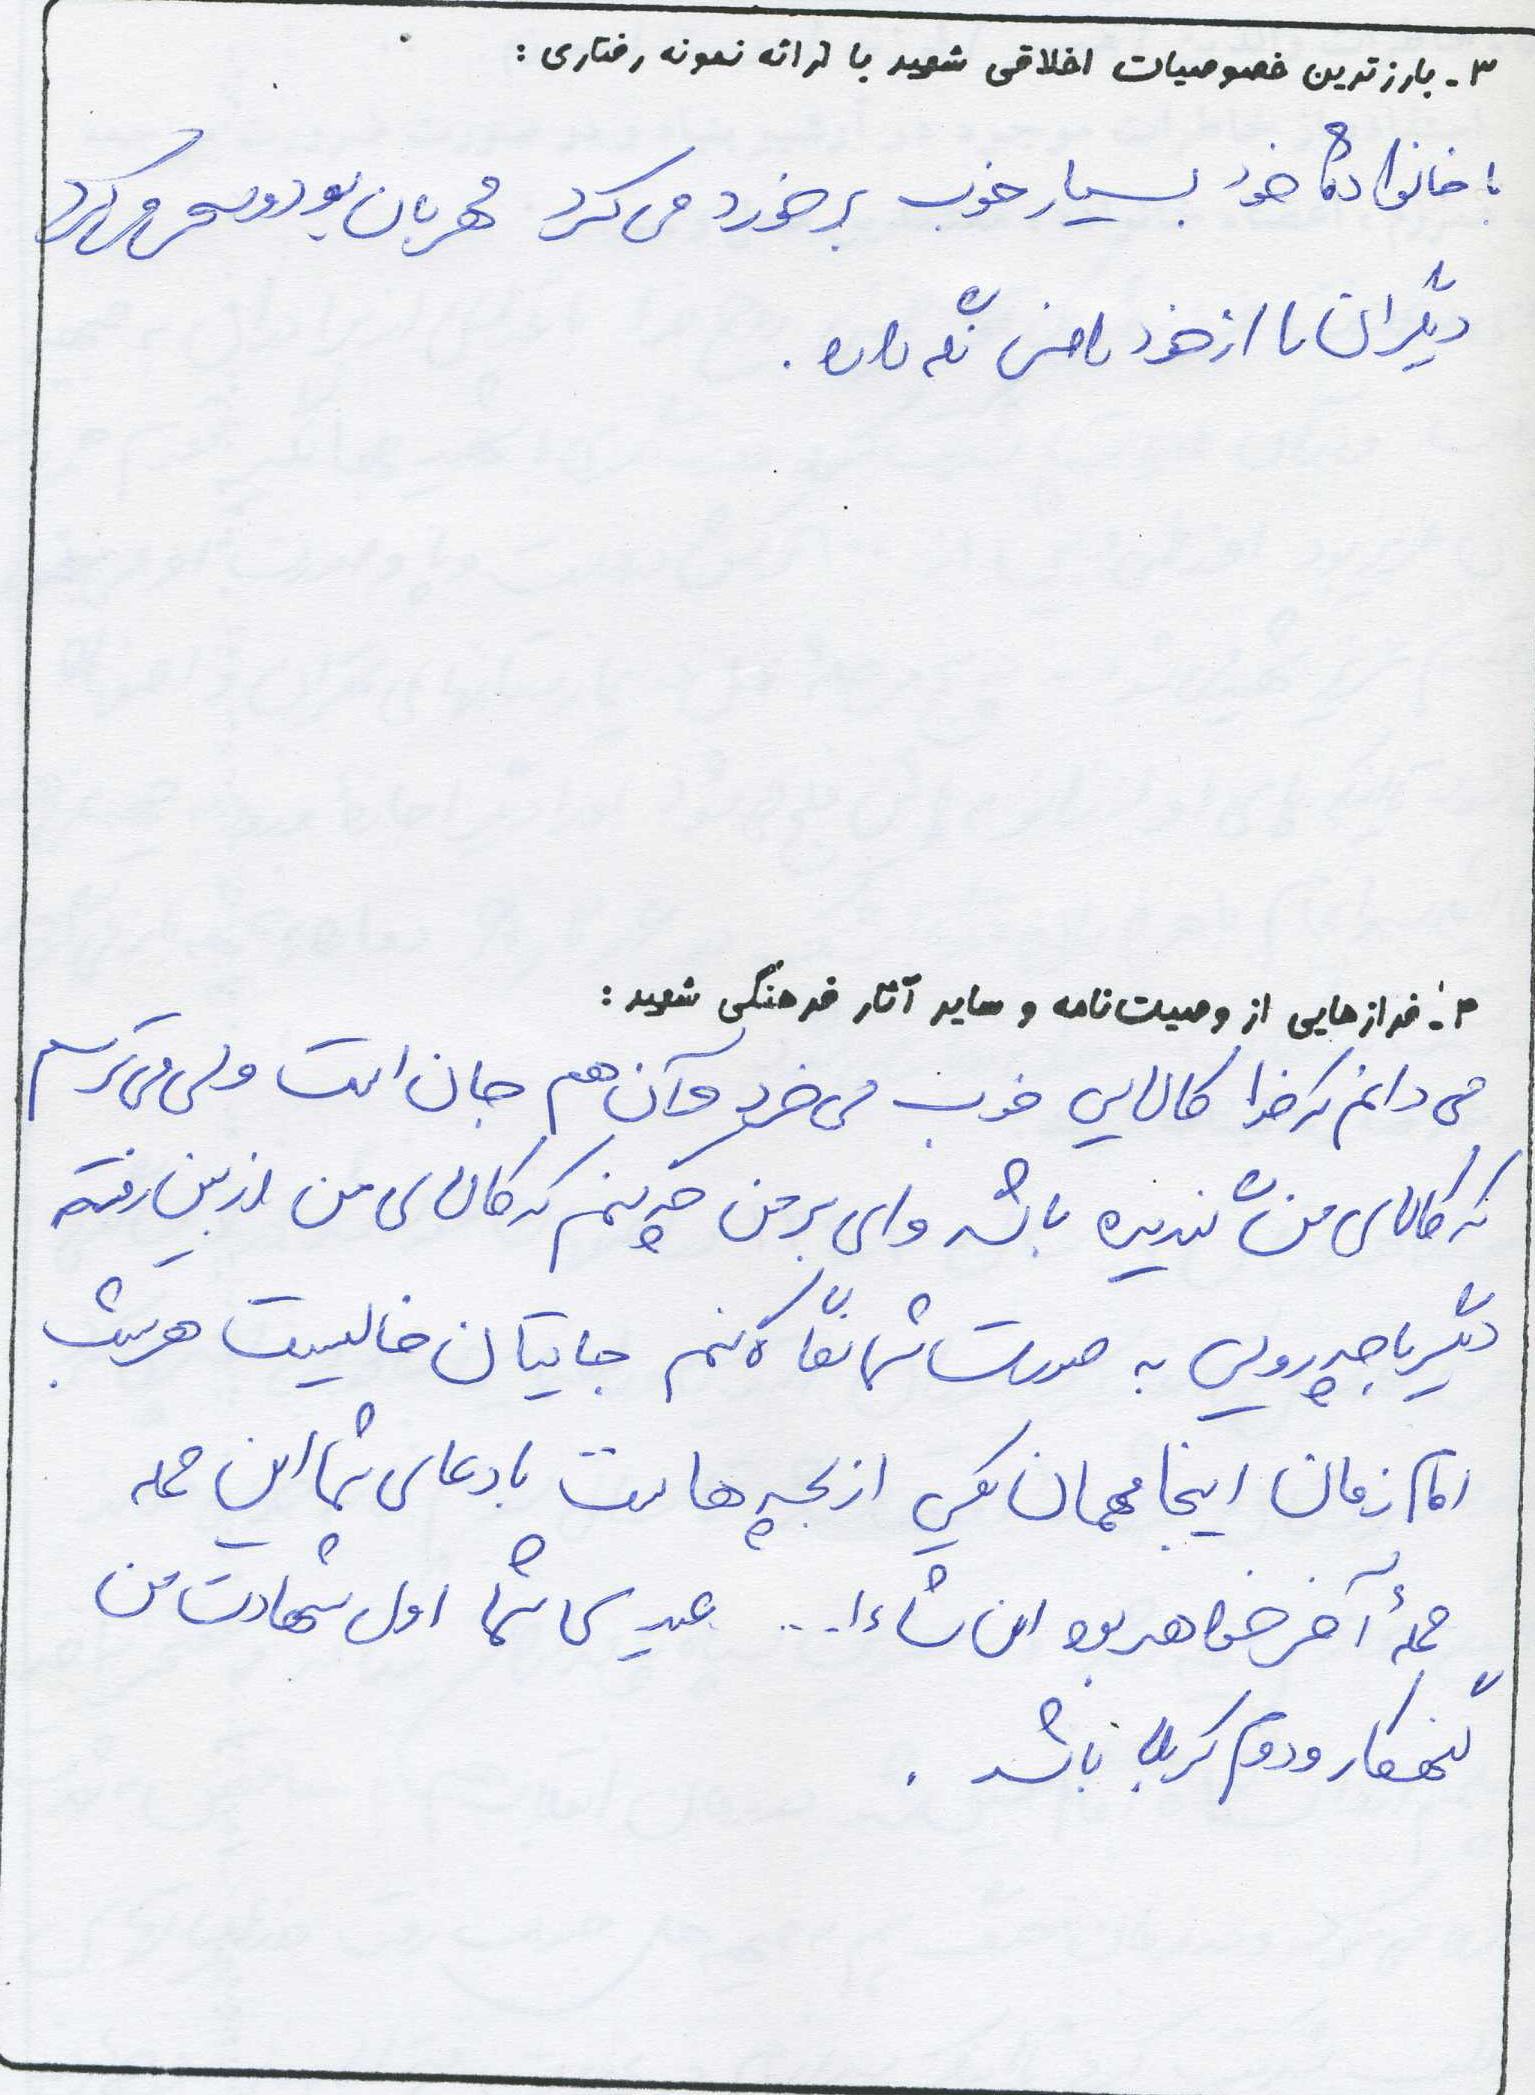 ۳- بارزترین خصوصیات اخلاقی شهید با ارائه نمونه رفتاری :
با خانواده خود بسیار خوب برخورد می کرد مهربان بود و سعی می کرد
دیگران را از خود راضی نگه دارد .
۴- فرازهایی از وصیت‌نامه و سایر آثار فرهنگی شهید :
می دانم که خدا کالایی خوب می خرد و آن هم جان است ولی می ترسم
که کالای من گندیده باشد وای بر من چه کنم که کالای من از بین رفته
دیگر با چه رویی به صورت شما نگاه کنم جایتان خالیست هر شب
امام زمان اینجا مهمان یکی از بچه هاست با دعای شما این حمله
حملهٔ آخر خواهد بود ان شاءا... عیدی شما اول شهادت من
گنهکار و دوم کربلا باشد .